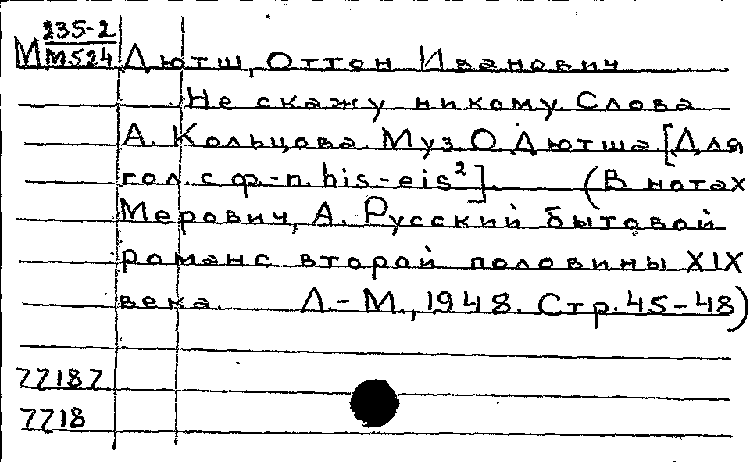 235-2
М М524 Дютш, Оттон Иванович
Не скажу никому. Слова
А. Кольцова. Муз. О. Дютша [Для
гол. с ф.-п. his-eis²]. (В нотах
Мерович, А. Русский бытовой
романс второй половины XIX
века. Л.-М., 1948. Стр. 45-48)
77187
7718